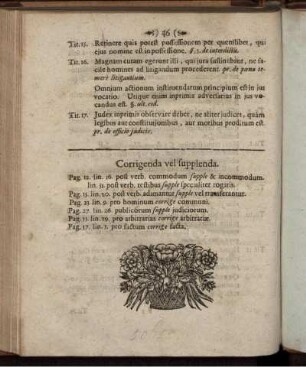 36
Tit. 15. Retinere quis potest possessionem per quemlibet, qui
ejus nomine est in possessione. §. 5. de interdictis.
Tit. 16. Magnam curam egerunt illi, qui jura sustinebant, ne fa-
cile homines ad litigandum procederent. pr. de poena te-
mere litigantium.
Omnium actionum instituendarum principium est in jus
vocatio. Utique enim inprimis adversarius in jus vo-
candus est. §. ult. eod.
Tit. 17. Judex inprimis observare debet, ne aliter judicet, quam
legibus aut constitutionibus, aut moribus proditum est
pr. de officio judicis.
Corrigenda vel supplenda.
Pag. 12. lin. 16. post verb. commodum supple & incommodum.
lin. 31. post verb. testibus supple specialiter rogatis.
Pag. 15. lin. 20. post verb. adimantur supple vel transferantur.
Pag. 21 lin. 9. pro hominum corrige communi.
Pag. 27. lin. 26. publicorum supple judiciorum.
Pag. 33. lin. 19. pro arbitrarias corrige arbitrariæ.
Pag. 17. lin. 7. pro factum corrige facta.